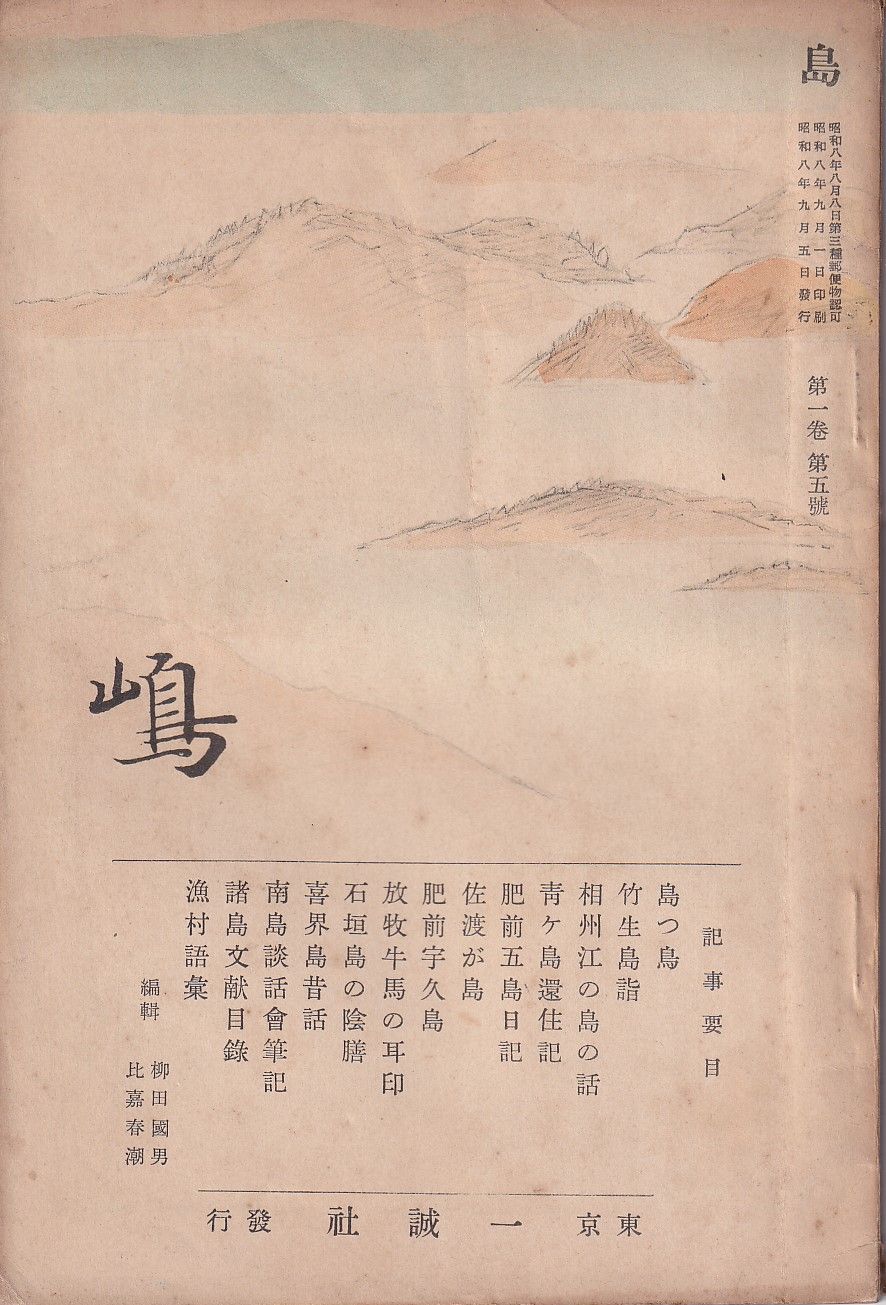 島
昭和八年八月八日第三種郵便物認可
昭和八年九月一日印刷
昭和八年九月五日發行
第一卷 第五號
嶋
記事要目
島つ鳥
竹生島詣
相州江の島の話
青ケ島還住記
肥前五島日記
佐渡が島
肥前宇久島
放牧牛馬の耳印
石垣島の陰膳
喜界島昔話
南島談話會筆記
諸島文献目錄
漁村語彙
編輯
柳田國男
比嘉春潮
東京 一誠社 發行